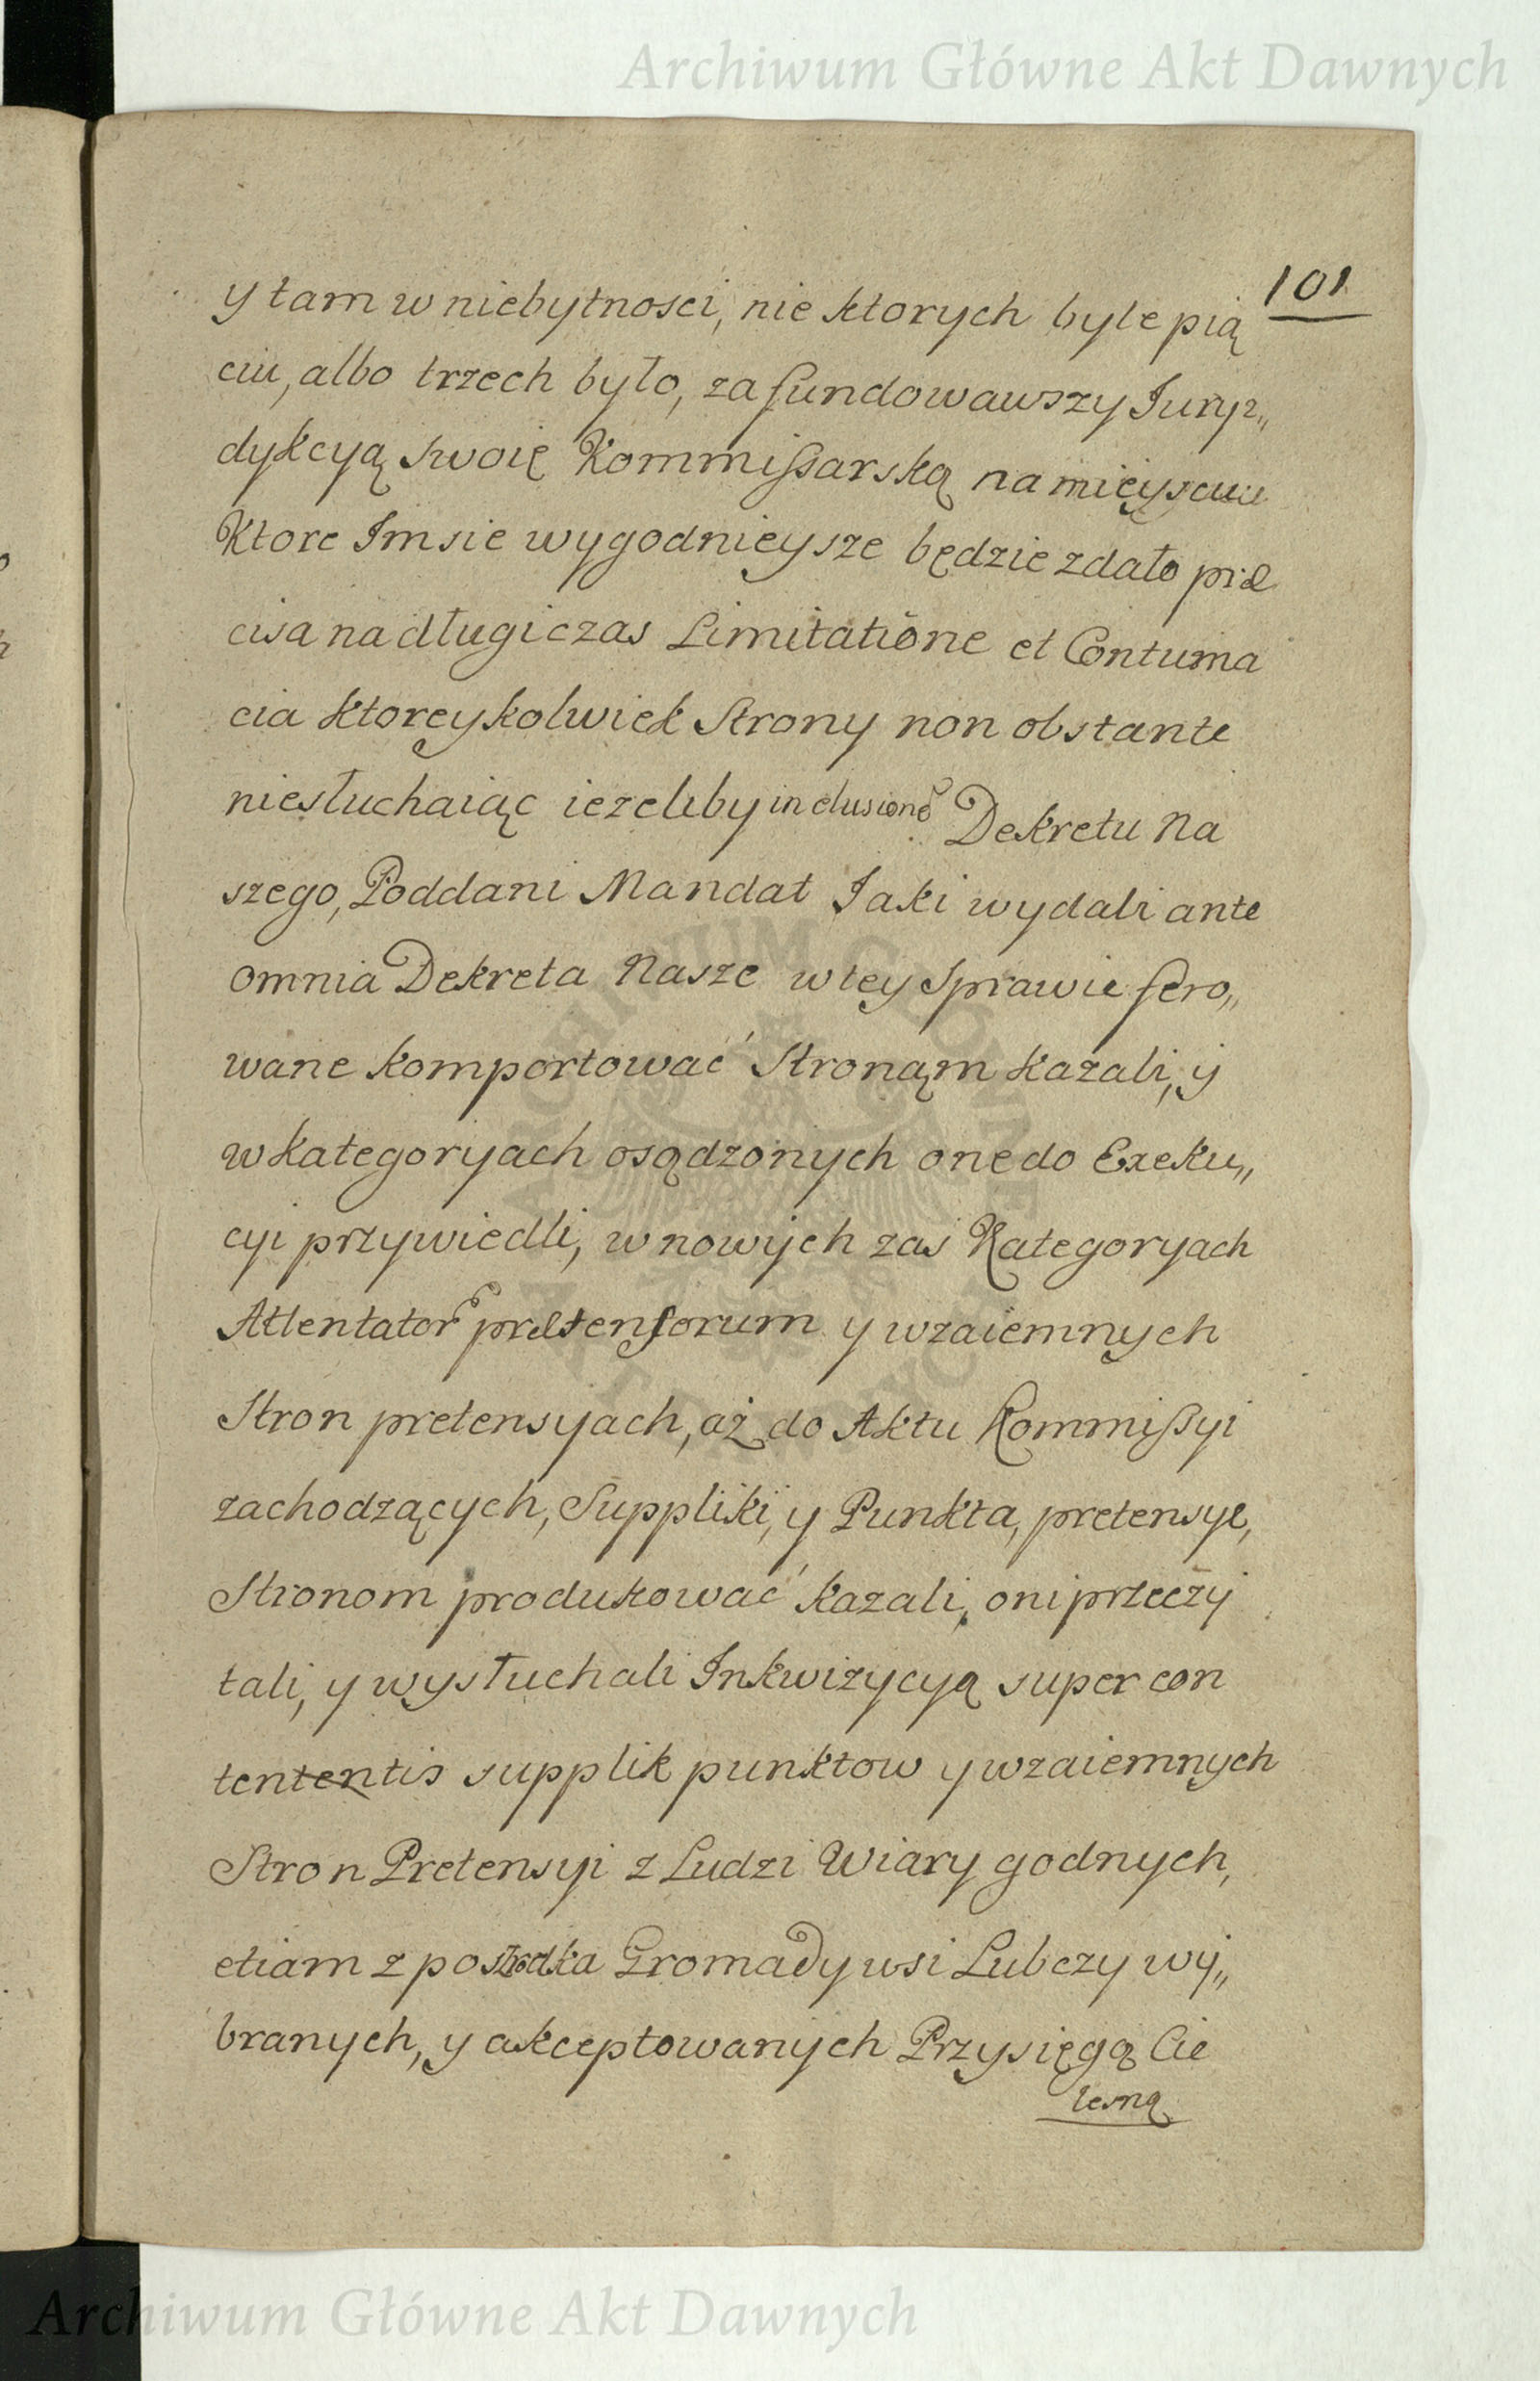 Archiwum Główne Akt Dawnych
101
y tam w niebytnosci, nie ktorych byle pią
ciu, albo trzech było, za fundowawszy Juryz„
dykcyą swoię Kommißarską na mieyscuu
Ktore Im sie wygodnieysze będzie zdało præ
cisa na długi czas Limitatiōne et Contuma
cia ktoreykolwiek Strony non obstante
niesłuchaiąc iezeliby in elusione Dekretu Na
szego, Poddani Mandat Jaki wydali ante
omnia Dekreta Nasze w tey Sprawie fero„
wane komportować Stronąm kazali, y
w kategoryach osądzonych one do Exeku„
cyi przywiedli, w nowych zas Kategoryach
Attentator prætensorum y wzaiemnych
Stron pretensyach, aż do Aktu Kommißyi
zachodzących, Suppliki, y Punkta, pretensye,
Stronom produkować kazali, oni przeczy
tali, y wysłuchali Inkwizycyą super con
tententis supplik punktow y wzaiemnych
Stron Pretensyi z Ludzi Wiary godnych,
etiam z posrodka Gromady wsi Lubczy wy„
branych, y akceptowanych Przysięgą Cie
lesną
Archiwum Główne Akt Dawnych